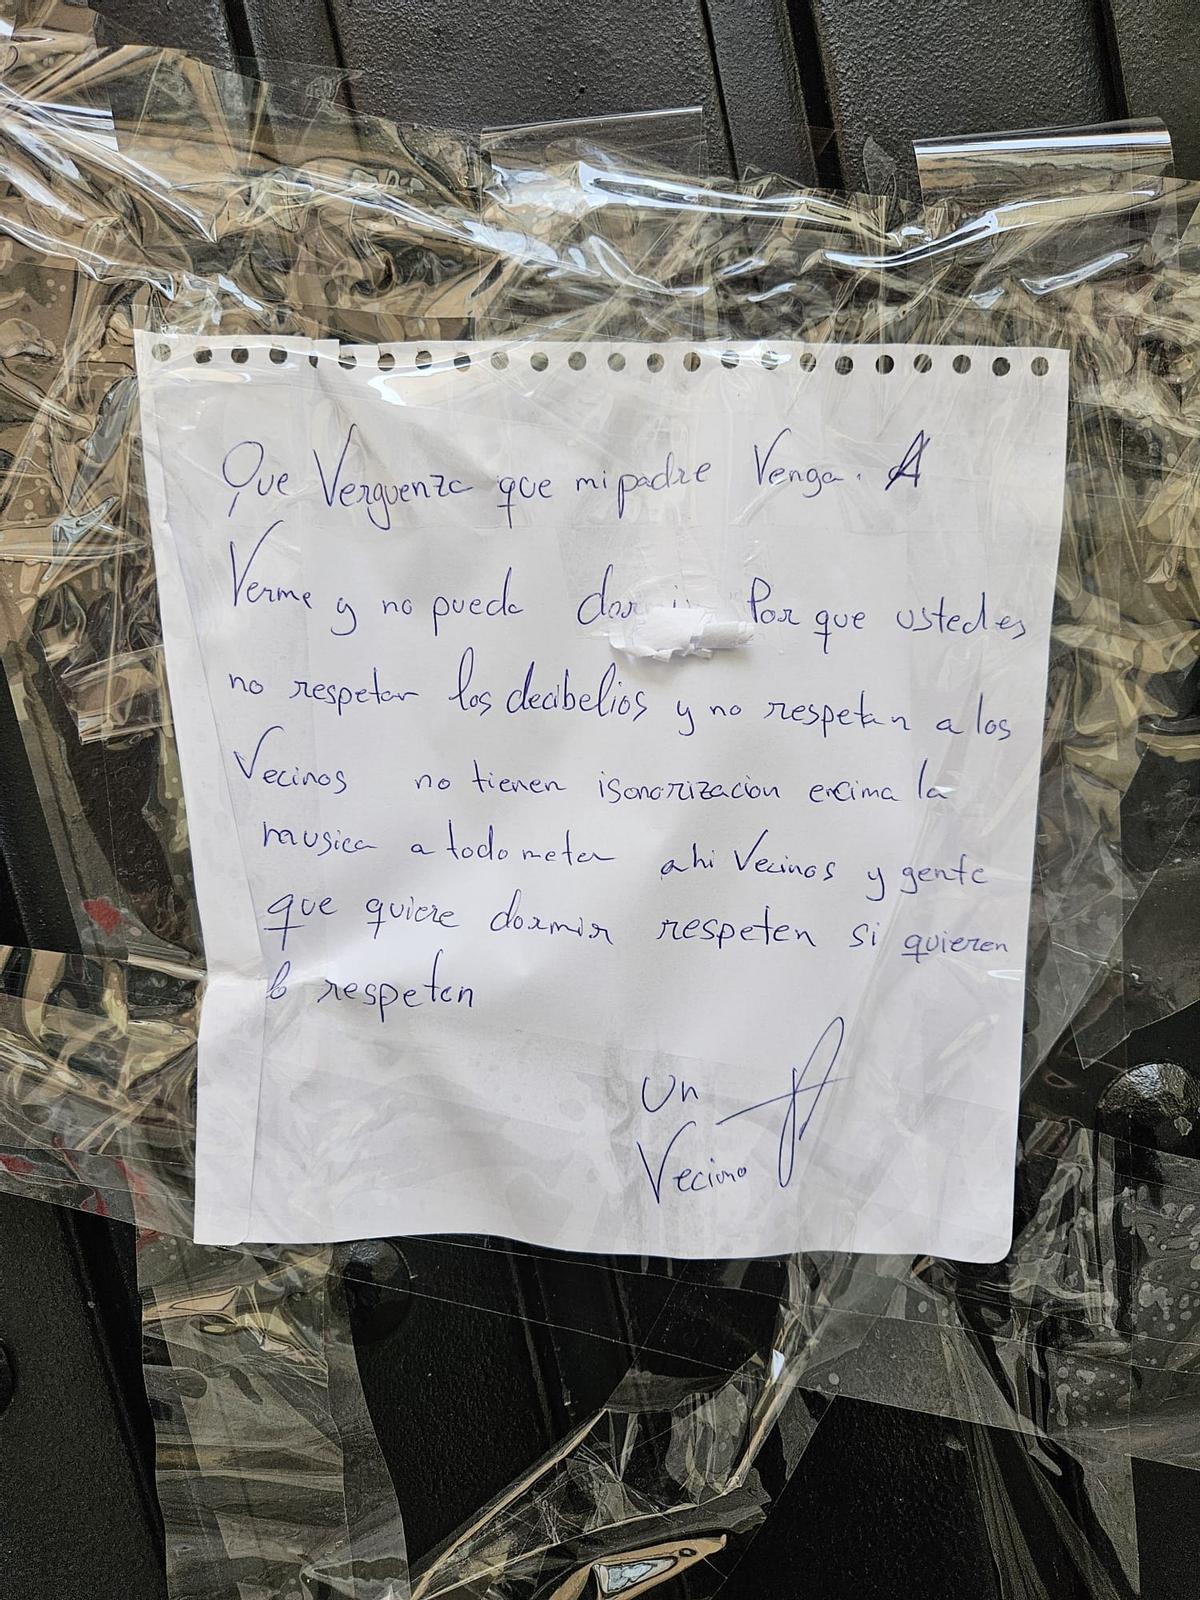 Que Verguenza que mi padre Venga. A
Verme y no pueda dormir Por que ustedes
no respetan los decibelios y no respetan a los
Vecinos no tienen isonorizacion encima la
musica a todo meter ahi Vecinos y gente
que quiere dormir respeten si quieren
lo respeten
Un
Vecino